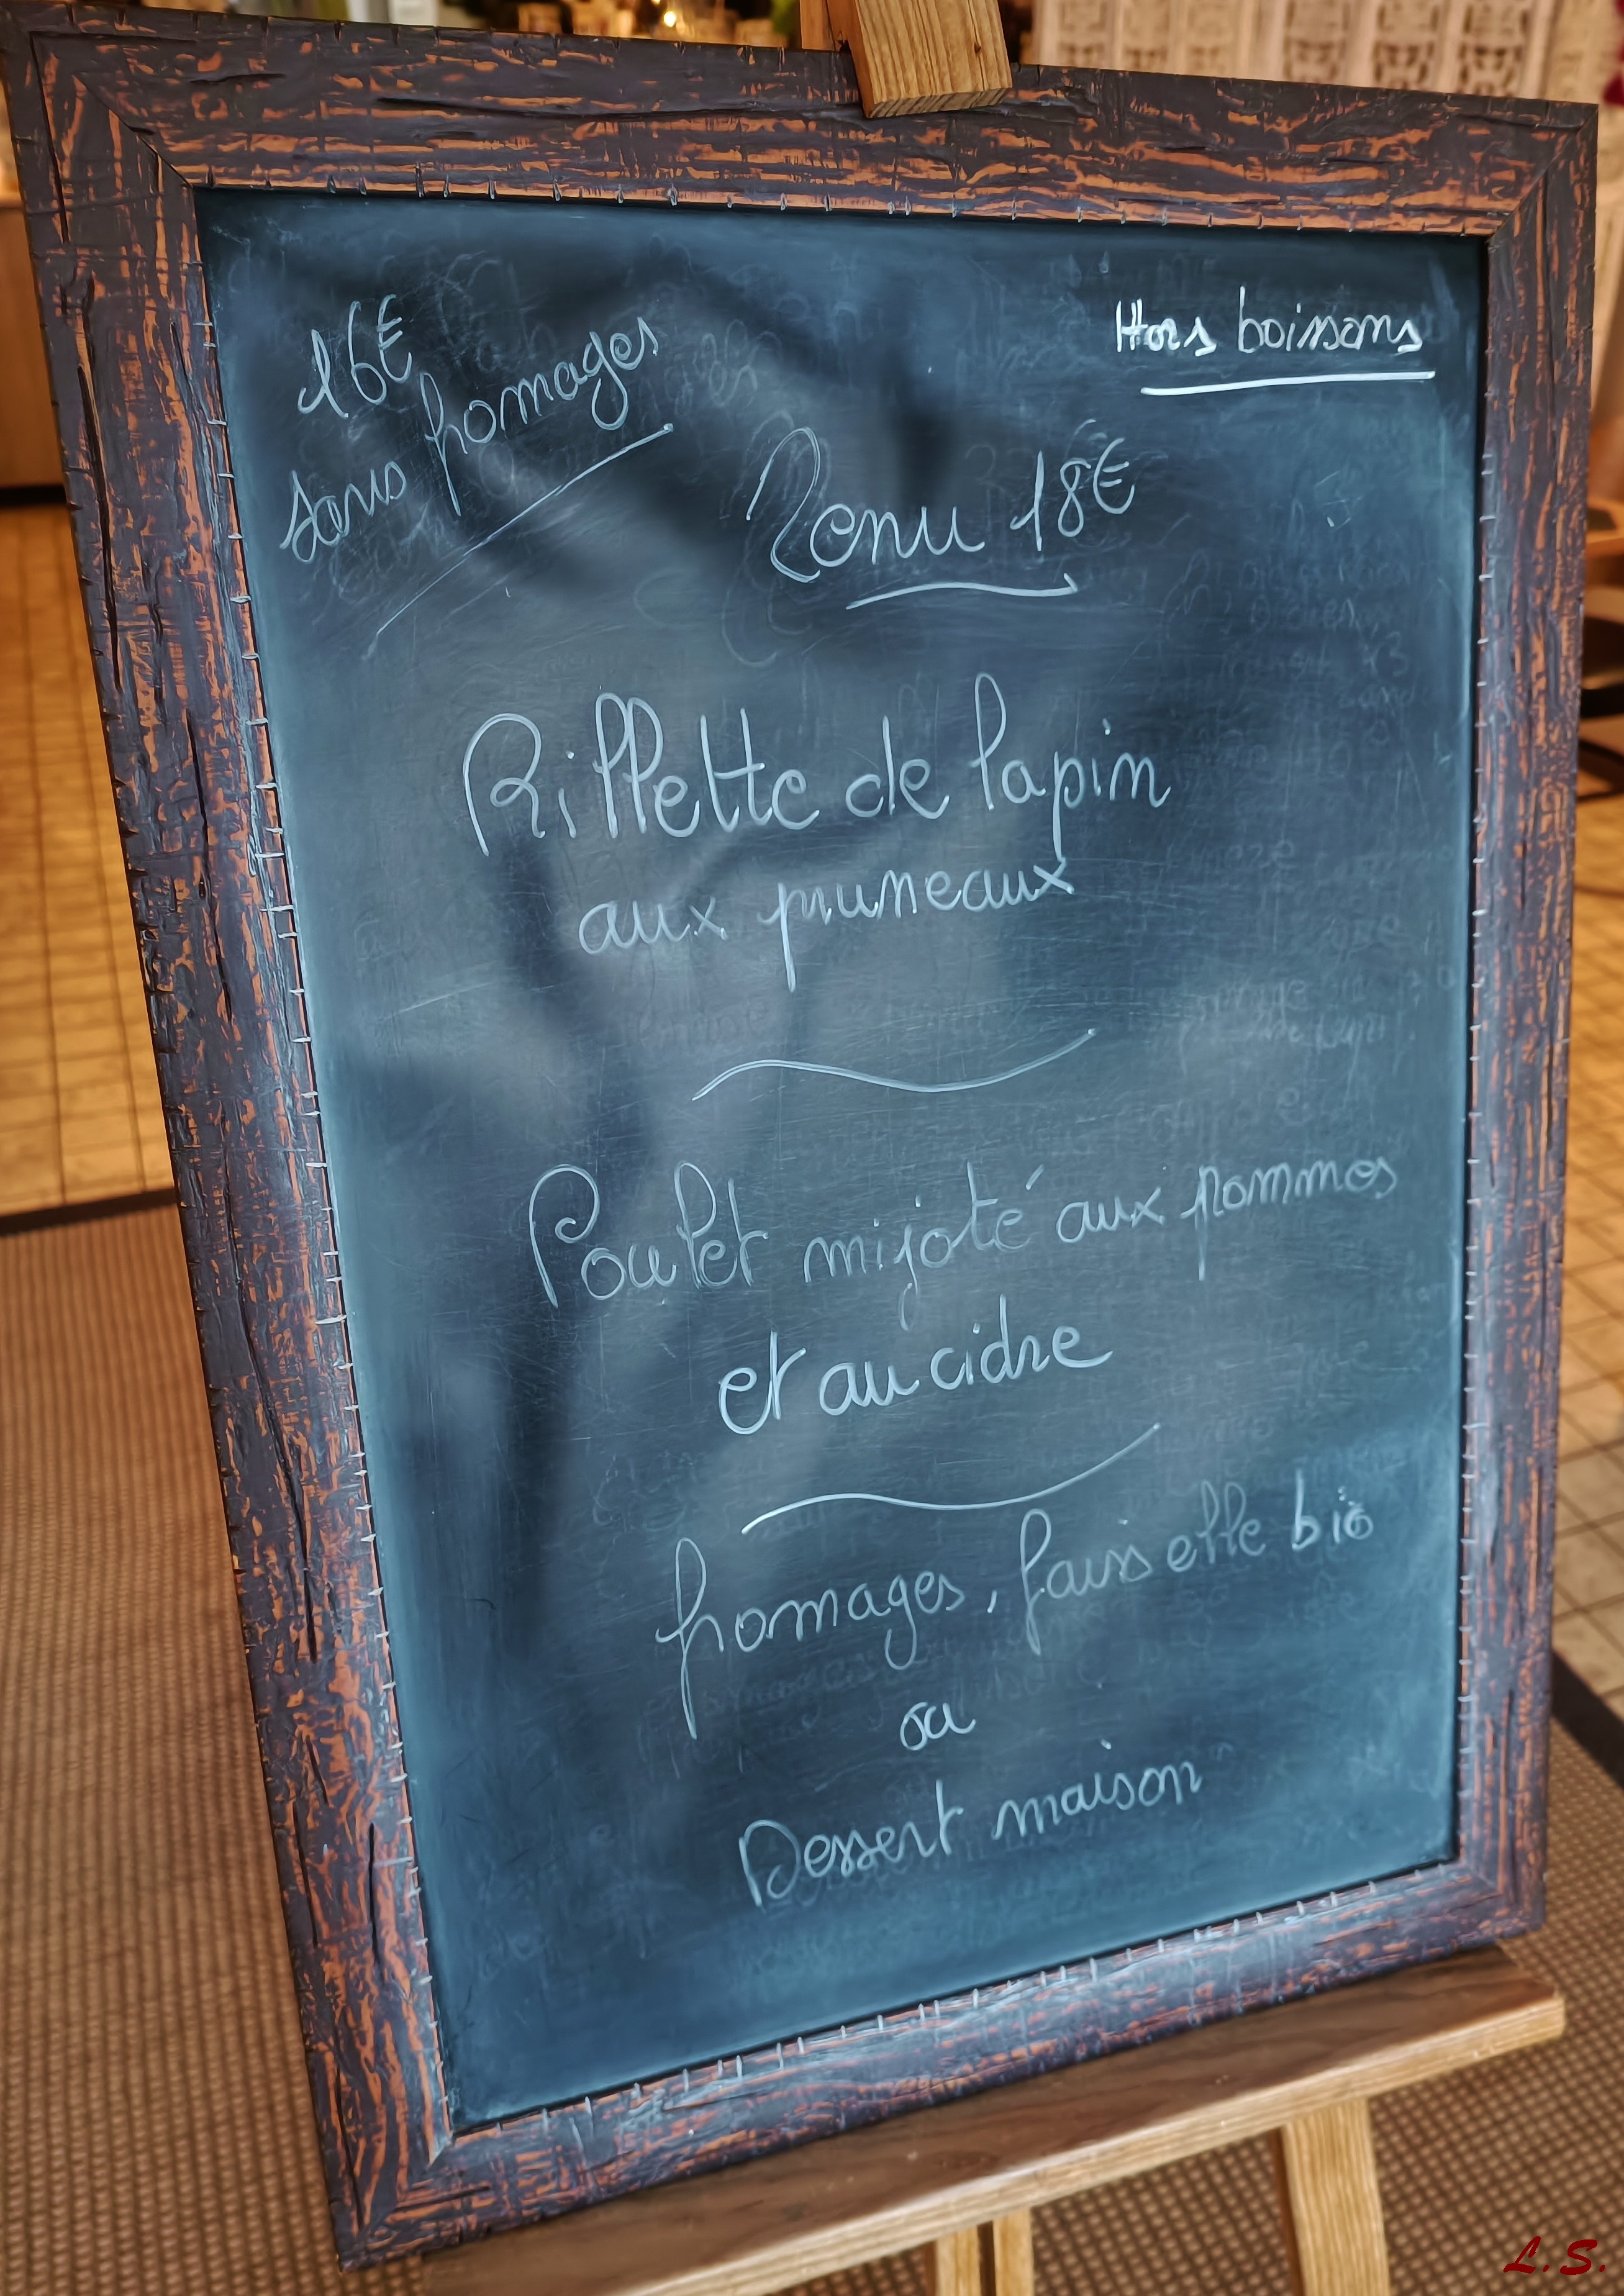 16€
sans fromages
Hors boissons
Menu 18€
Rillette de lapin
aux pruneaux
Poulet mijoté aux pommes
et au cidre
fromages, faisselle bio
ou
Dessert maison
L.S.